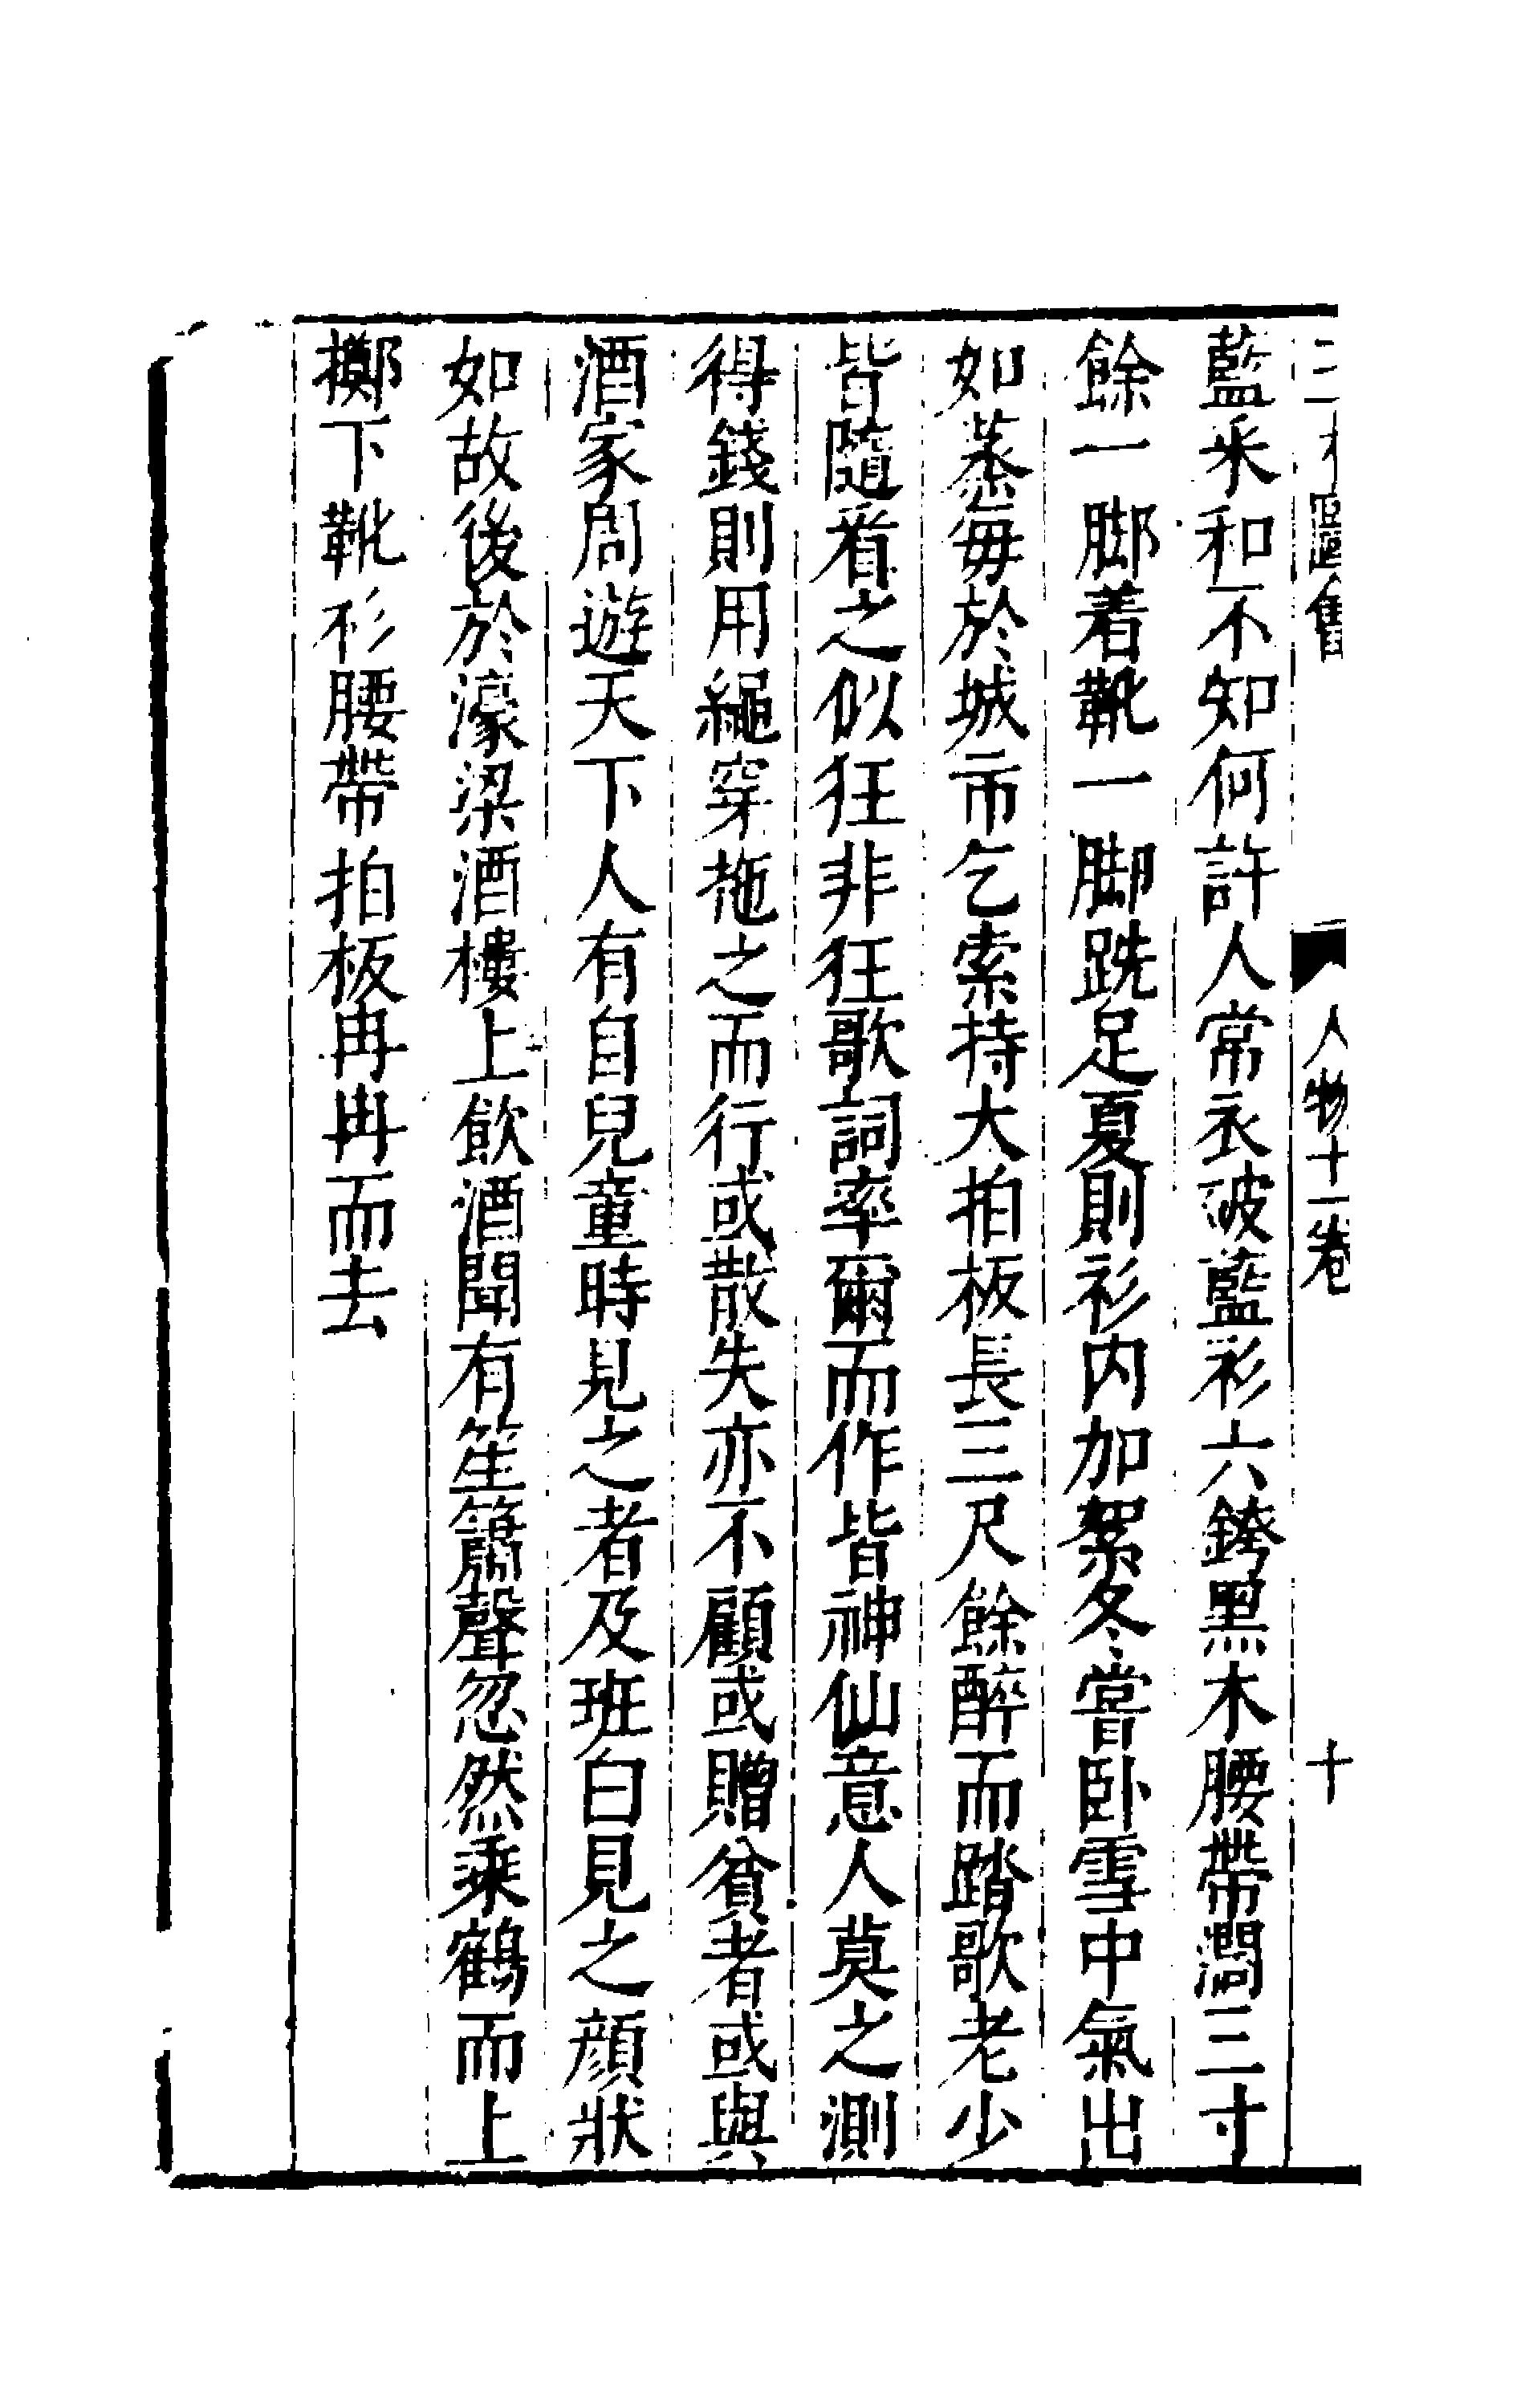 人物十一卷
十
藍采和不知何許人常衣破藍衫六銙黑木腰帶濶三寸
餘一脚着靴一脚跣足夏則衫内加絮冬嘗卧雪中氣出
如蒸每於城市乞索持大拍板長三尺餘醉而踏歌老少
皆隨看之似狂非狂歌詞率爾而作皆神仙意人莫之測
得錢則用繩穿拖之而行或散失亦不顧或贈貧者或與
酒家周遊天下人有自兒童時見之者及班白見之顔狀
如故後於濠梁酒樓上飲酒聞有笙簫聲忽然乘鶴而上
擲下靴衫腰帶拍板冉冉而去